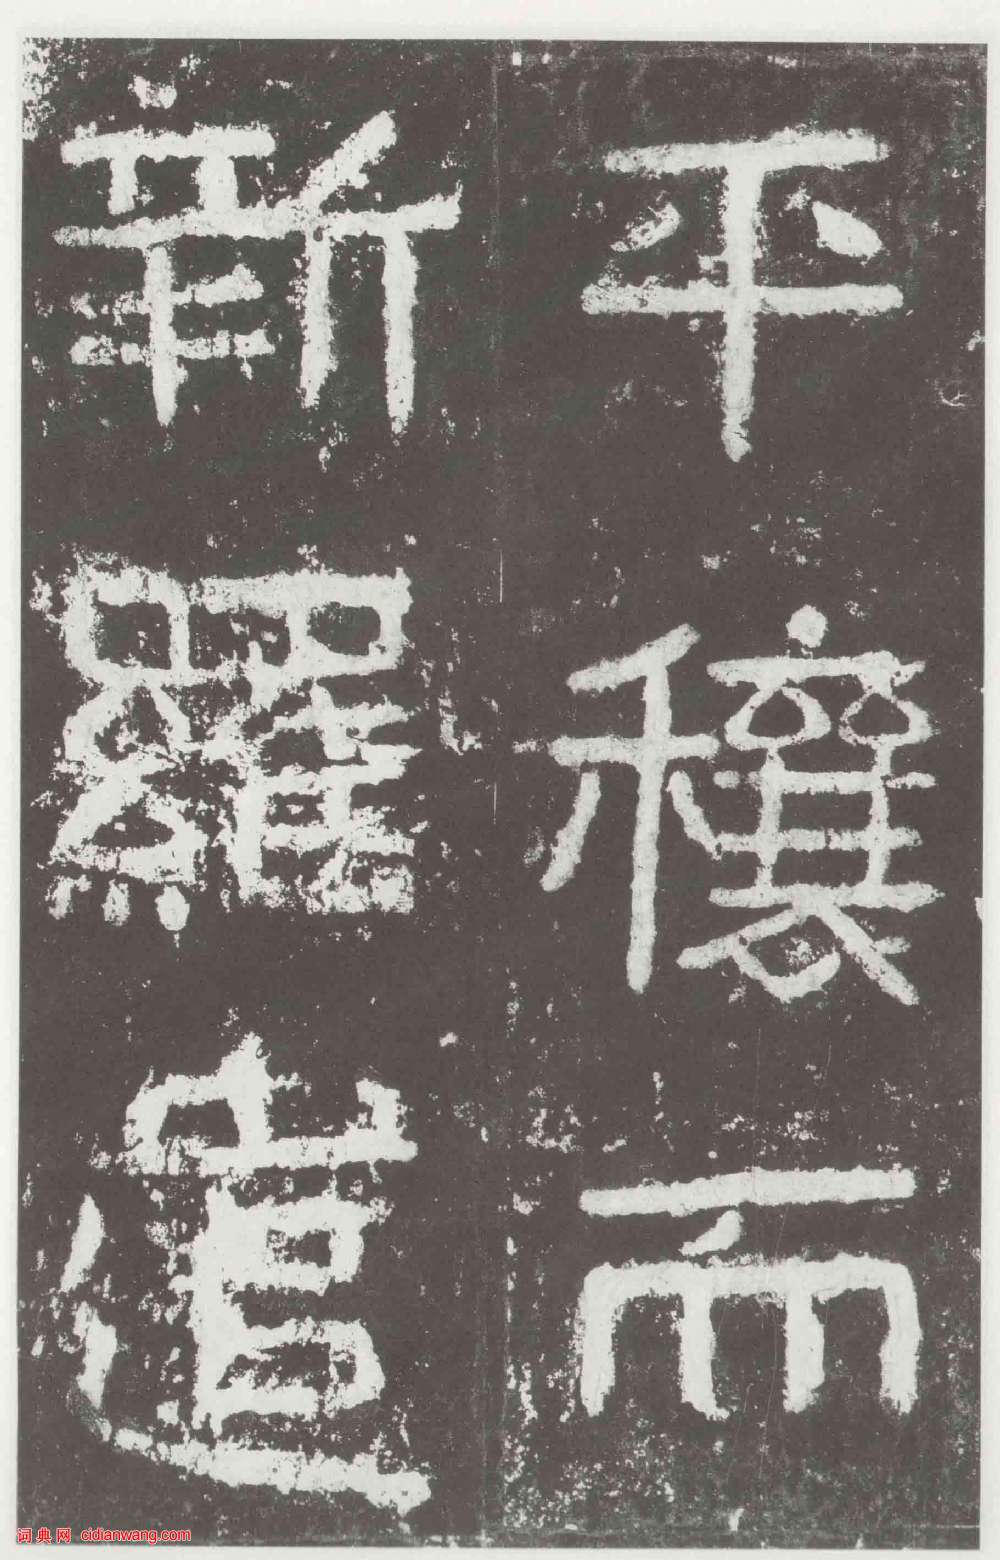 平穰而
新羅逭
词典网 cidianwang.com